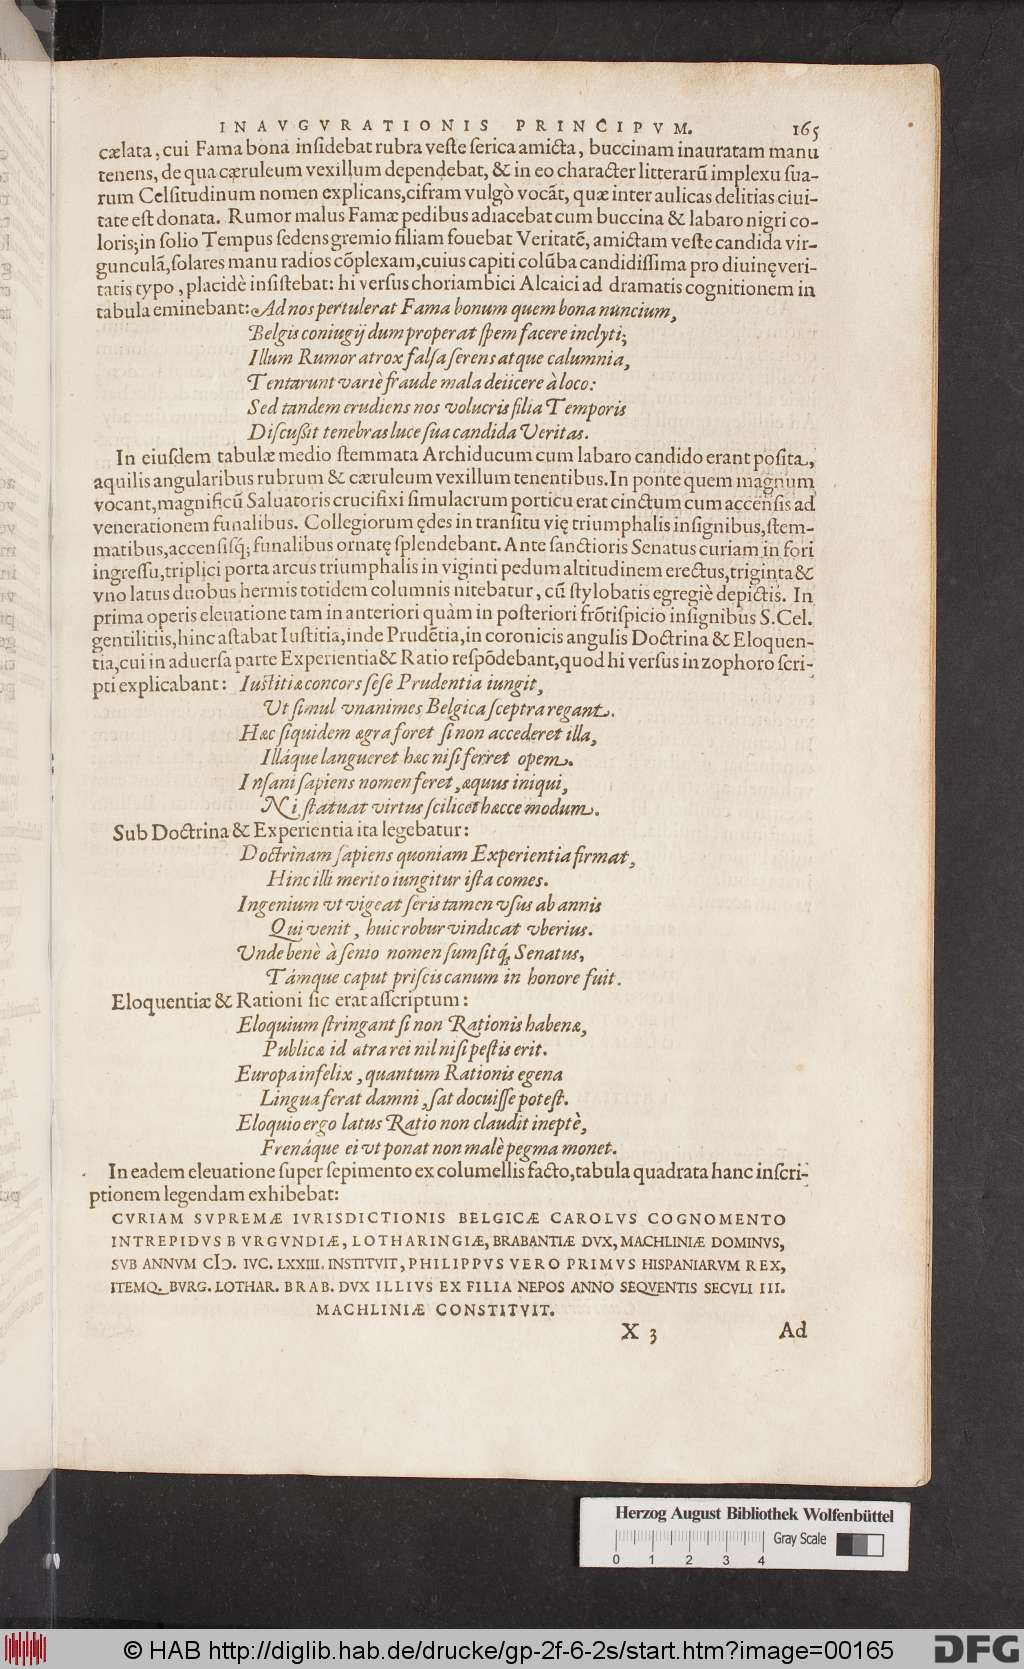 INAVGVRATIONIS PRINCIPVM. 165
cælata, cui Fama bona insidebat rubra veste serica amicta, buccinam inauratam manu
tenens, de qua cæruleum vexillum dependebat, & in eo character litterarũ implexu sua-
rum Celsitudinum nomen explicans, cifram vulgò vocãt, quæ inter aulicas delitias ciui-
tate est donata. Rumor malus Famæ pedibus adiacebat cum buccina & labaro nigri co-
loris; in solio Tempus sedens gremio filiam fouebat Veritatẽ, amictam veste candida vir-
gunculã, solares manu radios cõplexam, cuius capiti colũba candidissima pro diuinę veri-
tatis typo, placidè insistebat: hi versus choriambici Alcaici ad dramatis cognitionem in
tabula eminebant: Ad nos pertulerat Fama bonum quem bona nuncium,
Belgis coniugij dum properat spem facere inclyti;
Illum Rumor atrox falsa serens atque calumnia,
Tentarunt variè fraude mala deiicere à loco:
Sed tandem erudiens nos volucris filia Temporis
Discußit tenebras luce sua candida Veritas.
In eiusdem tabulæ medio stemmata Archiducum cum labaro candido erant posita,
aquilis angularibus rubrum & cæruleum vexillum tenentibus. In ponte quem magnum
vocant, magnificũ Saluatoris crucifixi simulacrum porticu erat cinctum cum accensis ad
venerationem funalibus. Collegiorum ędes in transitu vię triumphalis insignibus, stem-
matibus, accensisq́; funalibus ornatę splendebant. Ante sanctioris Senatus curiam in fori
ingressu, triplici porta arcus triumphalis in viginti pedum altitudinem erectus, triginta &
vno latus duobus hermis totidem columnis nitebatur, cũ stylobatis egregiè depictis. In
prima operis eleuatione tam in anteriori quàm in posteriori frõtispicio insignibus S. Cel.
gentilitiis, hinc astabat Iustitia, inde Prudẽtia, in coronicis angulis Doctrina & Eloquen-
tia, cui in aduersa parte Experientia & Ratio respõdebant, quod hi versus in zophoro scri-
pti explicabant: Iustitia concors sese Prudentia iungit,
Vt simul vnanimes Belgica sceptra regant.
Hæc siquidem ægra foret si non accederet illa,
Illáque langueret hæc nisi ferret opem.
Insani sapiens nomen feret, æquus iniqui,
Ni statuat virtus scilicet hæcce modum.
Sub Doctrina & Experientia ita legebatur:
Doctrinam sapiens quoniam Experientia firmat,
Hinc illi merito iungitur ista comes.
Ingenium vt vigeat seris tamen vsus ab annis
Qui venit, huic robur vindicat vberius.
Vnde benè à senio nomen sumsitq́; Senatus,
Támque caput priscis canum in honore fuit.
Eloquentiæ & Rationi sic erat asscriptum:
Eloquium stringant si non Rationis habenæ,
Publicæ id atra rei nil nisi pestis erit.
Europa infelix, quantum Rationis egena
Lingua ferat damni, sat docuisse potest.
Eloquio ergo latus Ratio non claudit ineptè,
Frenáque ei vt ponat non malè pegma monet.
In eadem eleuatione super sepimento ex columellis facto, tabula quadrata hanc inscri-
ptionem legendam exhibebat:
CVRIAM SVPREMÆ IVRISDICTIONIS BELGICÆ CAROLVS COGNOMENTO
INTREPIDVS BVRGVNDIÆ, LOTHARINGIÆ, BRABANTIÆ DVX, MACHLINIÆ DOMINVS,
SVB ANNVM CIↃ. IVC. LXXIII. INSTITVIT, PHILIPPVS VERO PRIMVS HISPANIARVM REX,
ITEMQ. BVRG. LOTHAR. BRAB. DVX ILLIVS EX FILIA NEPOS ANNO SEQVENTIS SECVLI III.
MACHLINIÆ CONSTITVIT.
X 3 Ad
Herzog August Bibliothek Wolfenbüttel
Gray Scale
0 1 2 3 4
© HAB http://diglib.hab.de/drucke/gp-2f-6-2s/start.htm?image=00165
DFG